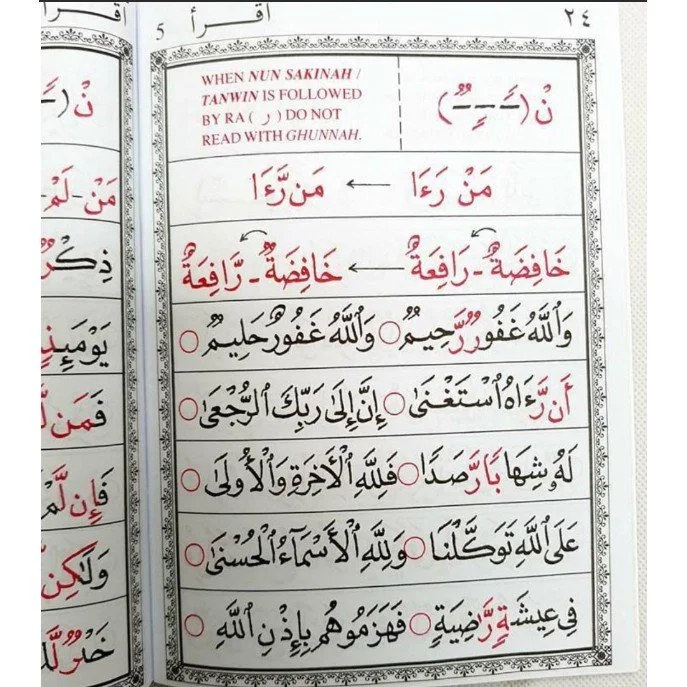 ٢٤ اقرأ 5
نْ (ــًــٍــٌ)
WHEN NUN SAKINAH /
TANWIN IS FOLLOWED
BY RA ( ر ) DO NOT
READ WITH GHUNNAH.
مَنْ رَءَا ← مَن رَّءَا
خَافِضَةٌ - رَافِعَةٌ ← خَافِضَةٌ - رَّافِعَةٌ
وَٱللَّهُ غَفُورٌ رَّحِيمٌ ○ وَٱللَّهُ غَفُورٌ حَلِيمٌ ○
أَن رَّءَاهُ ٱسْتَغْنَىٰ ○ إِنَّ إِلَىٰ رَبِّكَ ٱلرُّجْعَىٰ ○
لَهُۥ شِهَابًا رَّصَدًا ○ فَلِلَّهِ ٱلْأَخِرَةِ وَٱلْأُولَىٰ ○
عَلَى ٱللَّهِ تَوَكَّلْنَا ○ وَلِلَّهِ ٱلْأَسْمَآءُ ٱلْحُسْنَىٰ ○
فِى عِيشَةٍ رَّاضِيَةٍ ○ فَهَزَمُوهُم بِإِذْنِ ٱللَّهِ ○
اقرأ
نْ
مَنْ - لَمْ
ذِكْرٌ
يَوْمَئِذٍ
فَمَن
فَإِن لَّمْ
وَلَٰكِن